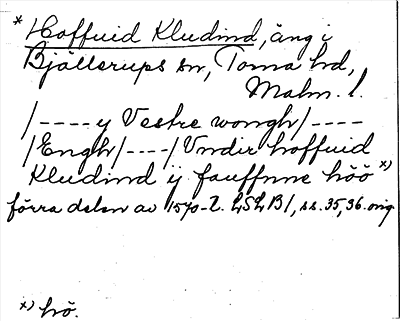 * Hoffuid Kludind, äng i
Bjällerups sn, Torna hd,
Malm. l.
/---- y Vestre wongh/----
/Engh/----/ Vndir hoffuid
Kludind ij fauffnne höö x)
förra delen av 1570-t. LSLB1, ss. 35, 36. orig
x) hö.